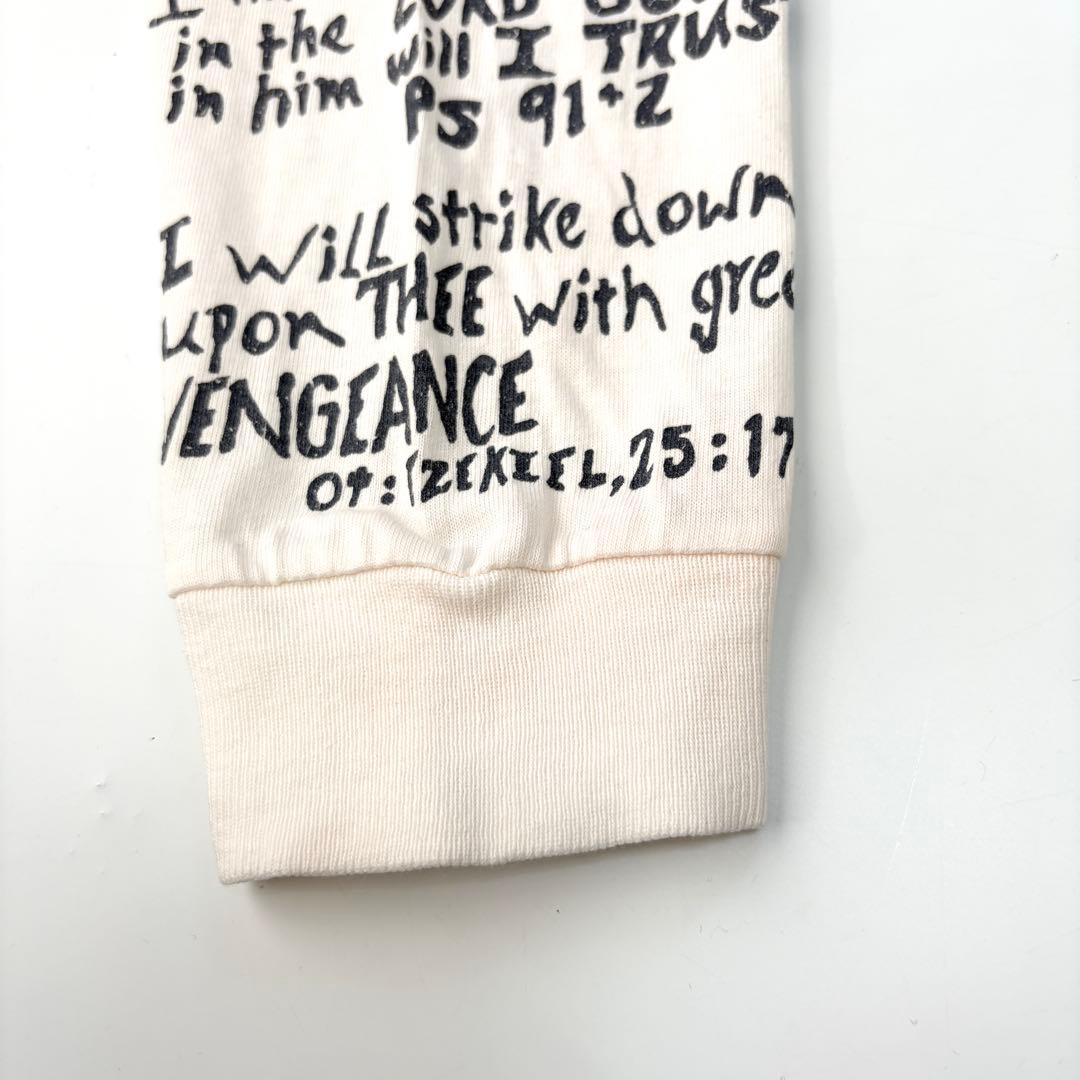 I LORD
in the will I TRUS
in him Ps 91+2
I Will strike down
upon THEE with grea
VENGEANCE
OT: EZEKIEL, 25:17